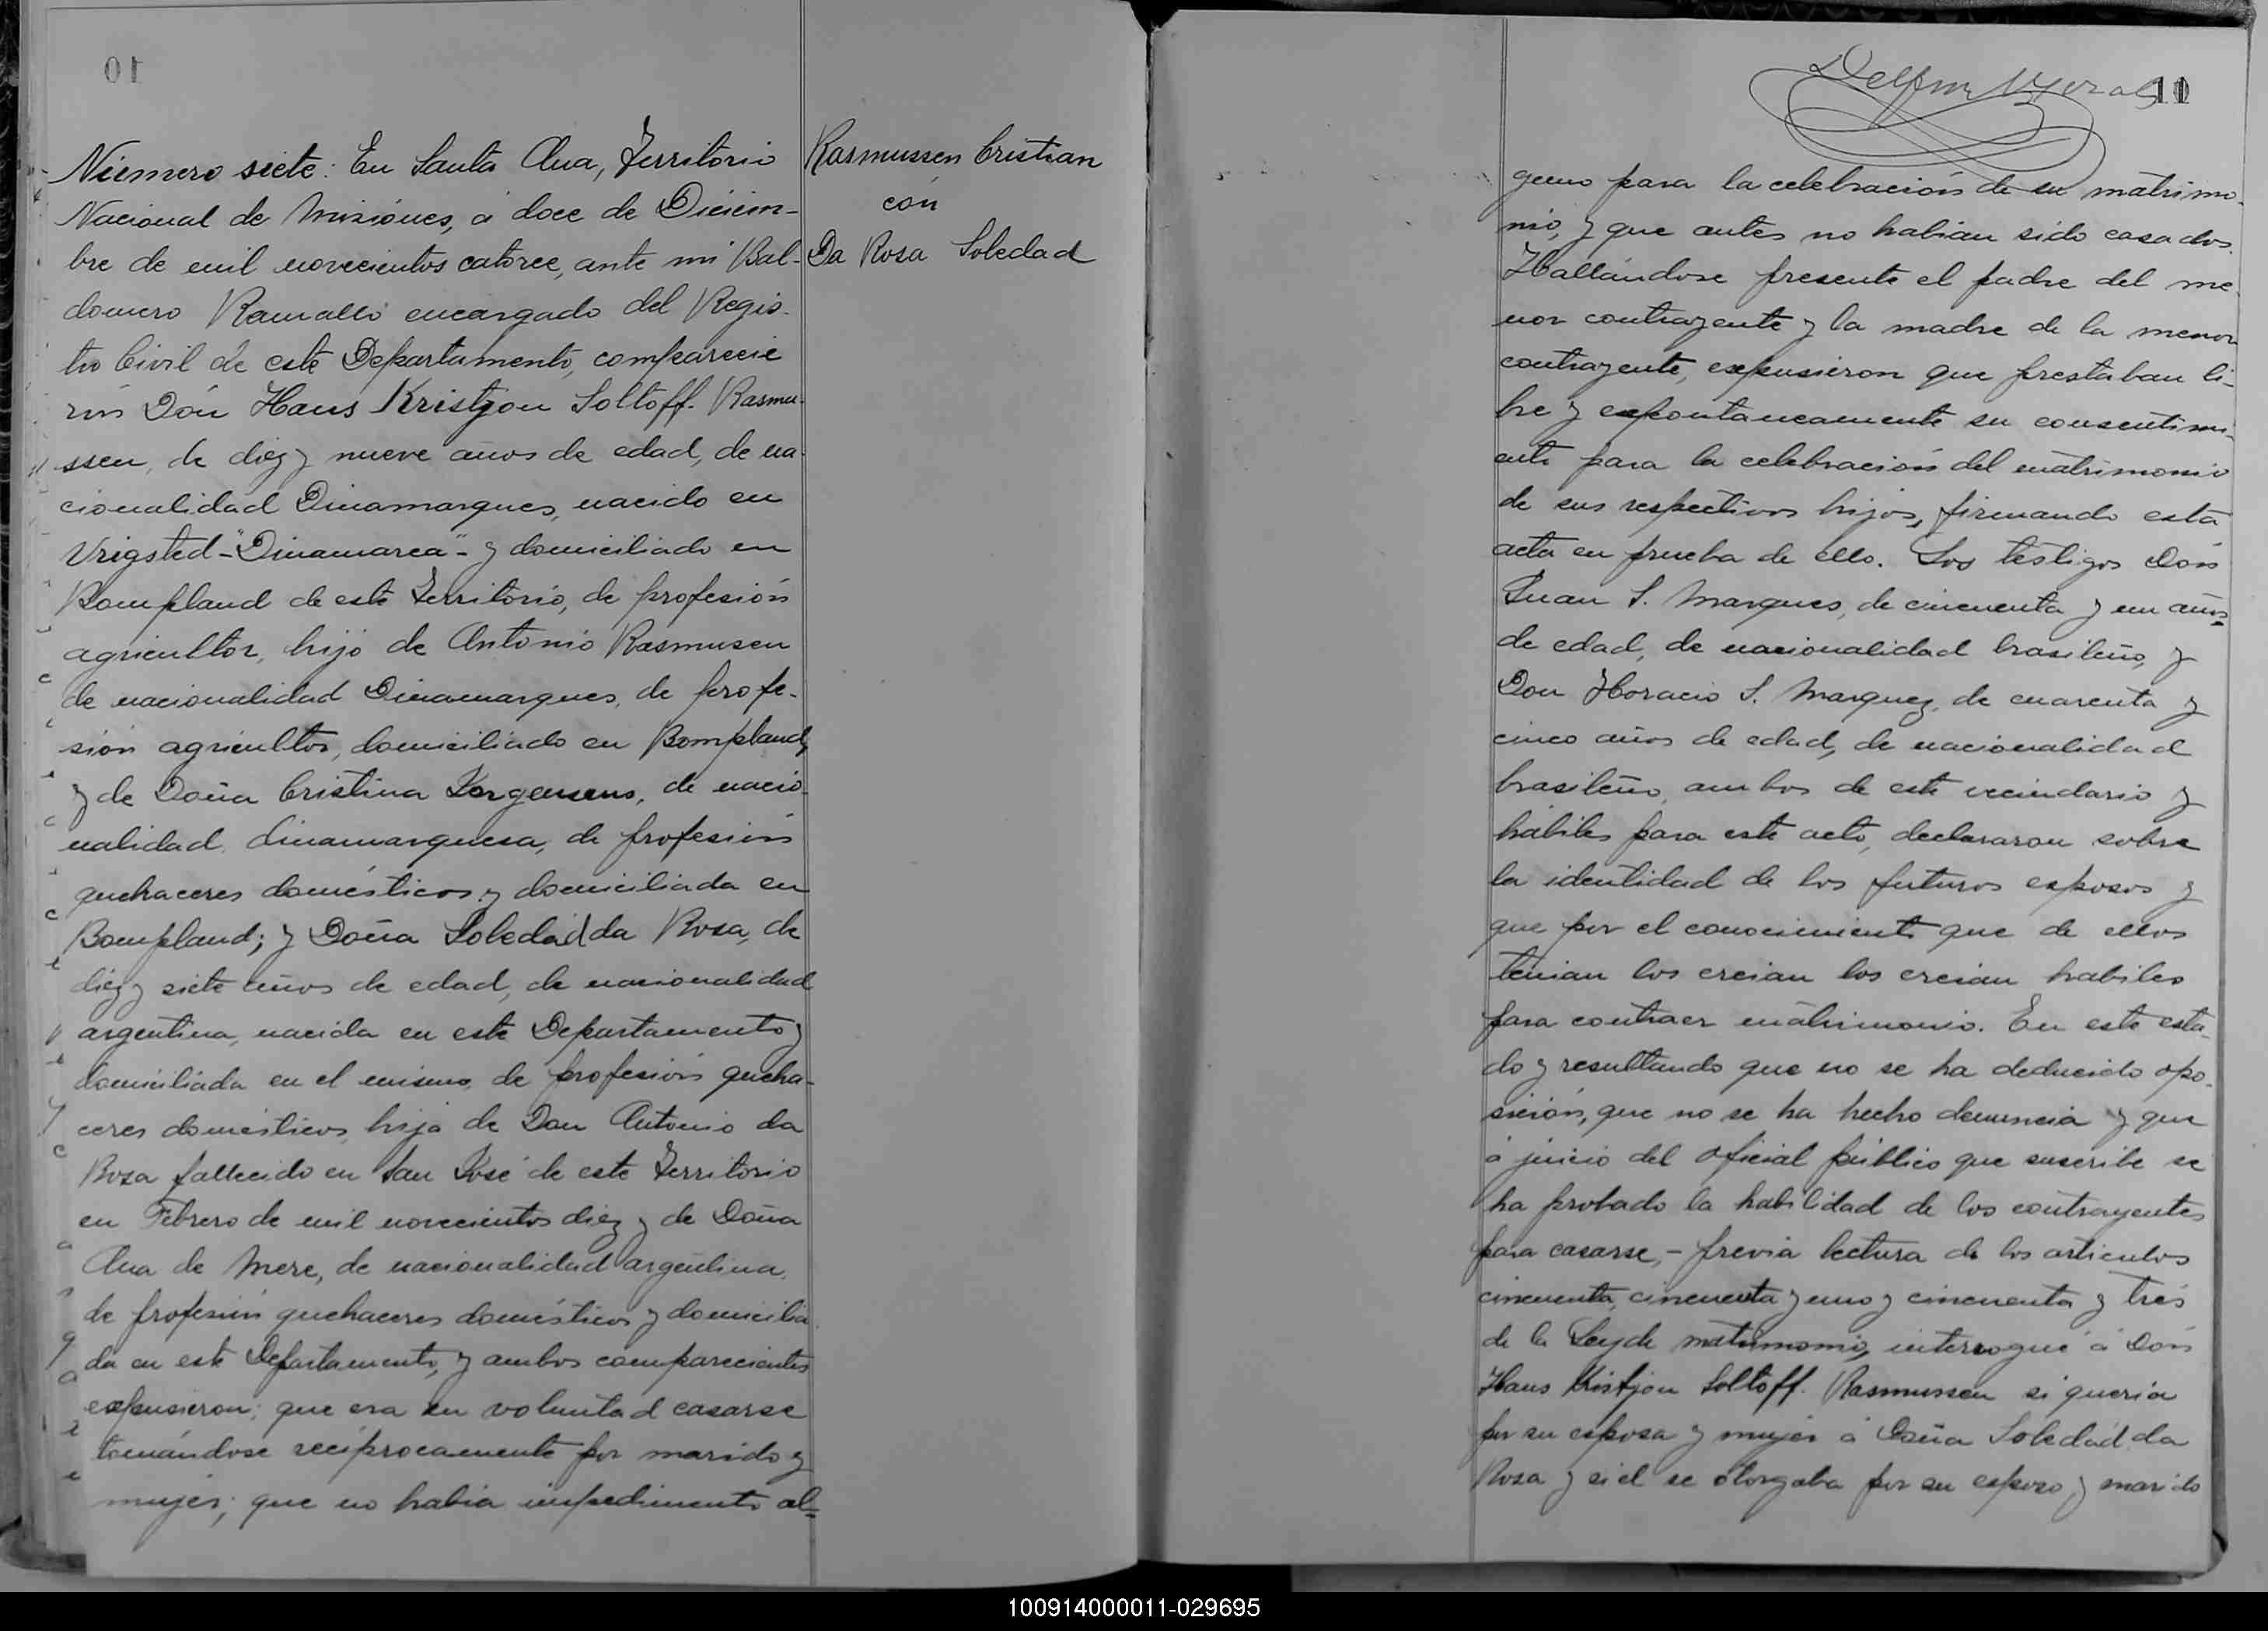 10
Rasmussen Cristian
con
Da Rosa Soledad
Número siete: En Santa Ana, Territorio
Nacional de Misiónes, á doce de Diciem-
bre de mil novecientos catorce, ante mi Bal-
domero Ramallo encargado del Regis-
tro Civil de este Departamento, comparecie
rón Dón Hans Kristjon Soltoff. Rasmu-
ssen, de diez y nueve años de edad, de na-
cionalidad Dinamarques, nacido en
Vrigsted-"Dinamarca"- y domiciliado en
Bompland de este Territorio, de profesión
agricultor, hijo de Antonio Rasmusen
de nacionalidad Dinamarques, de profe-
sión agricultor, domiciliado en Bompland,
y de Doña Cristina Jorgensens, de nacio-
nalidad, dinamarquesa, de profesión
quehaceres domésticos y domiciliada en
Bompland; y Doña Soledad da Rosa, de
diez y siete años de edad, de nacionalidad
argentina, nacida en este Departamento y
domiciliada en el mismo, de profesión queha-
ceres domésticos, hija de Don Antonio da
Rosa fallecido en San José de este Territorio
en Febrero de mil novecientos diez y de Doña
Ana de Mere, de nacionalidad argentina,
de profesión quehaceres domésticos y domicilia
da en este Departamento, y ambos comparecientes
expusieron; que era su voluntad casarse
tomándose recíprocamente por marido y
mujer; que no habia impedimento al-
11
guno para la celebración de su matrimo-
nio, y que antes no habian sido casados.
Hallándose presente el padre del me-
nor contrayente y la madre de la menor
contrayente, expusieron que prestaban li-
bre y espontaneamente su consentimi-
ento para la celebración del matrimonio
de sus respectivos hijos, firmando esta
acta en prueba de ello. Los testigos Dón
Juan S. Marques, de cincuenta y un años
de edad, de nacionalidad brasileño, y
Don Horacio S. Marquez, de cuarenta y
cinco años de edad, de nacionalidad
brasileño, ambos de este vecindario y
hábiles para este acto, declararon sobre
la identidad de los futuros esposos y
que por el conocimiento que de ellos
tenian los creian los creian habiles
para contraer matrimonio. En este esta-
do y resultando que no se ha deducido opo-
sición, que no se ha hecho denuncia y que
á juicio del oficial público que suscribe se
ha probado la habilidad de los contrayentes
para casarse, - previa lectura de los articulos
cincuenta, cincuenta y uno y cincuenta y tres
de la Ley de matrimonio, interrogué á Dón
Hans Kristjon Soltoff. Rasmussen si queria
por su esposa y mujer á Doña Soledad da
Rosa y si el se otorgaba por su esposo y marido
100914000011-029695